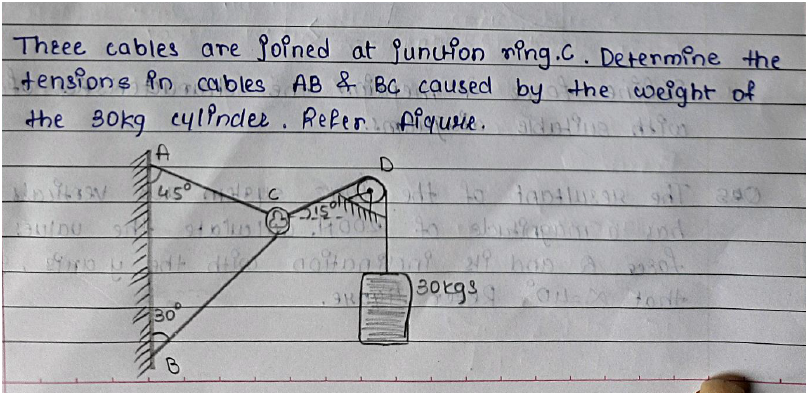 Three cables are joined at junction ring.C. Determine the
tensions in cables AB & BC caused by the weight of
the 30kg cylinder. Refer figure.
A
D
45°
C
15°
30kgs
30°
B